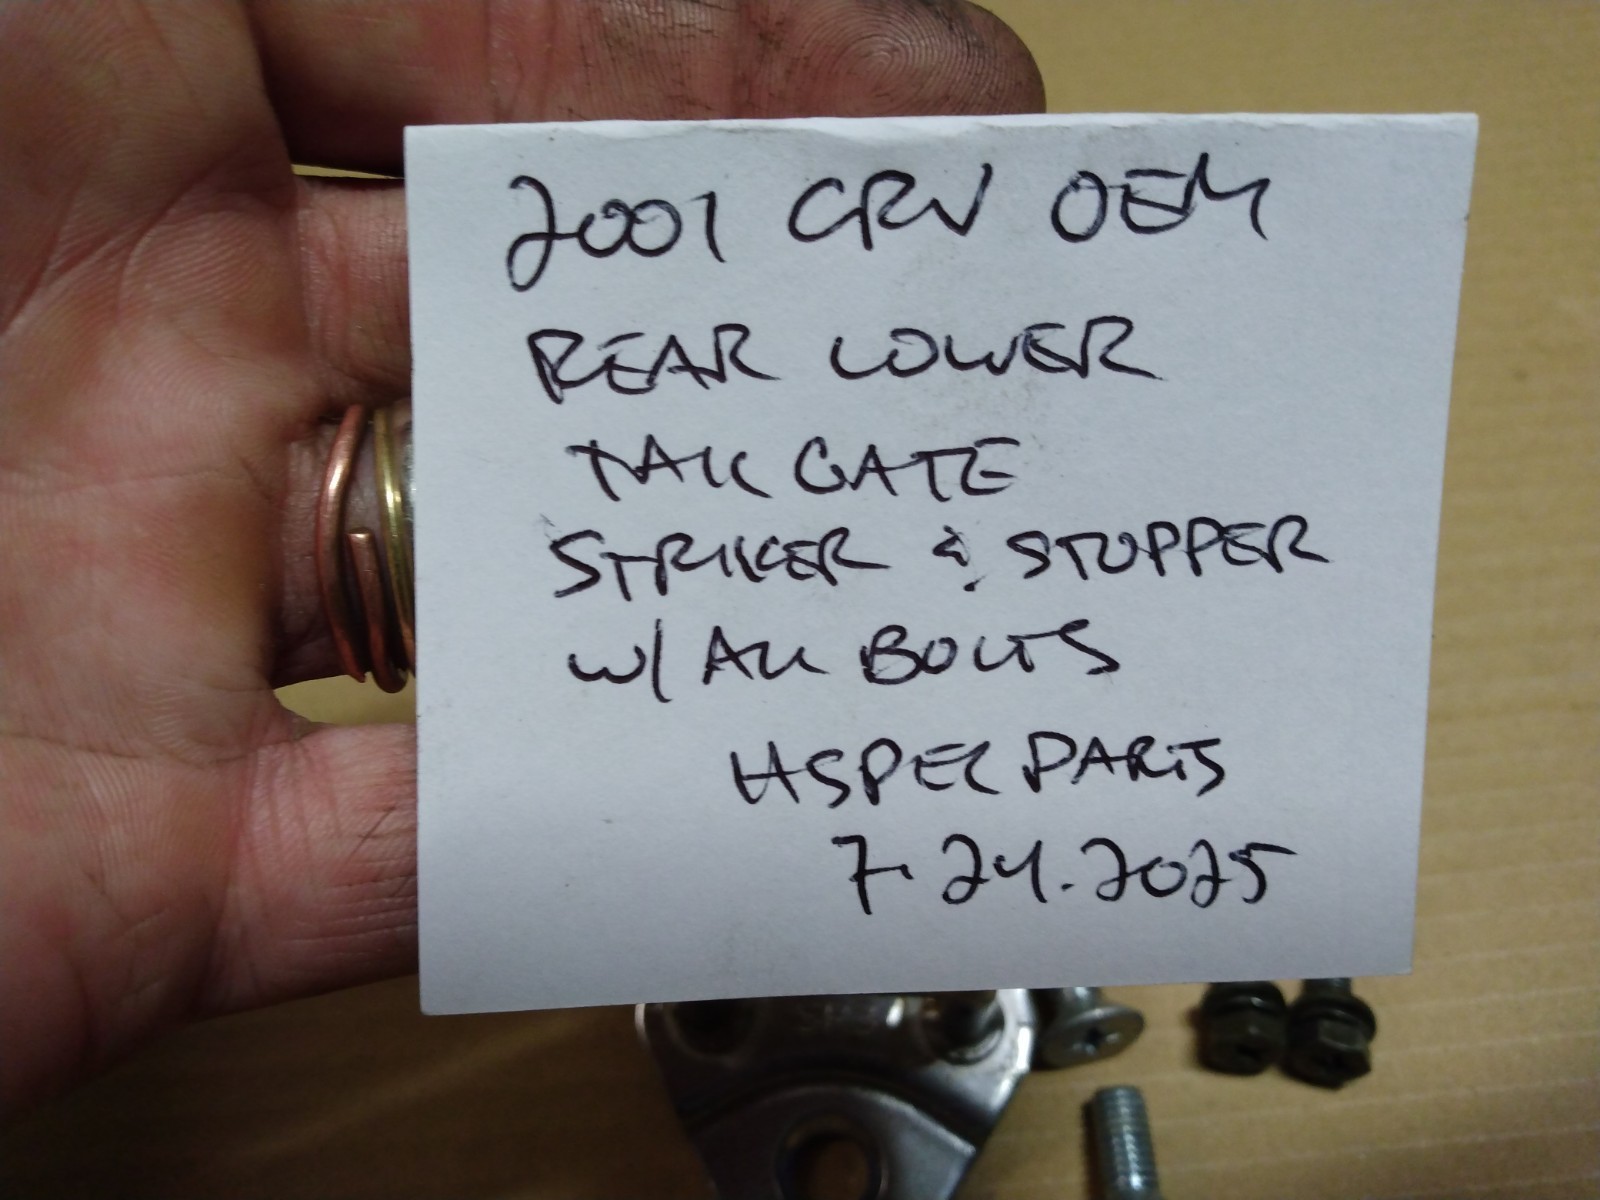 2001 CRV OEM
REAR LOWER
TAILGATE
STRIKER & STOPPER
W/ ALL BOLTS
HSPEC PARTS
7.24.2025